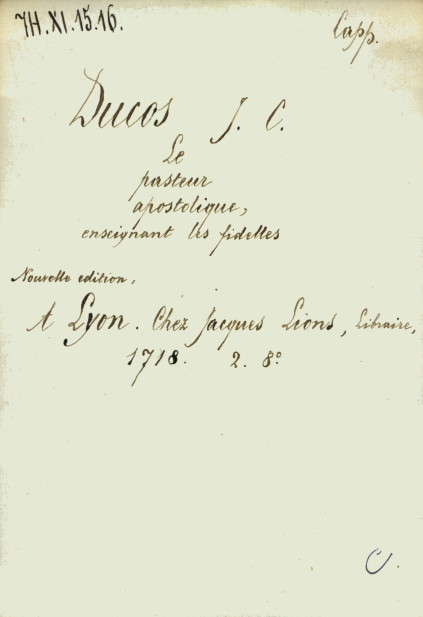 7H.XI.15.16.
Capp.
Ducos J. C.
Le
pasteur
apostolique,
enseignant les fidelles
Nouvelle edition,
A Lyon. Chez Jacques Lions, Libraire,
1718. 2. 8º
C.